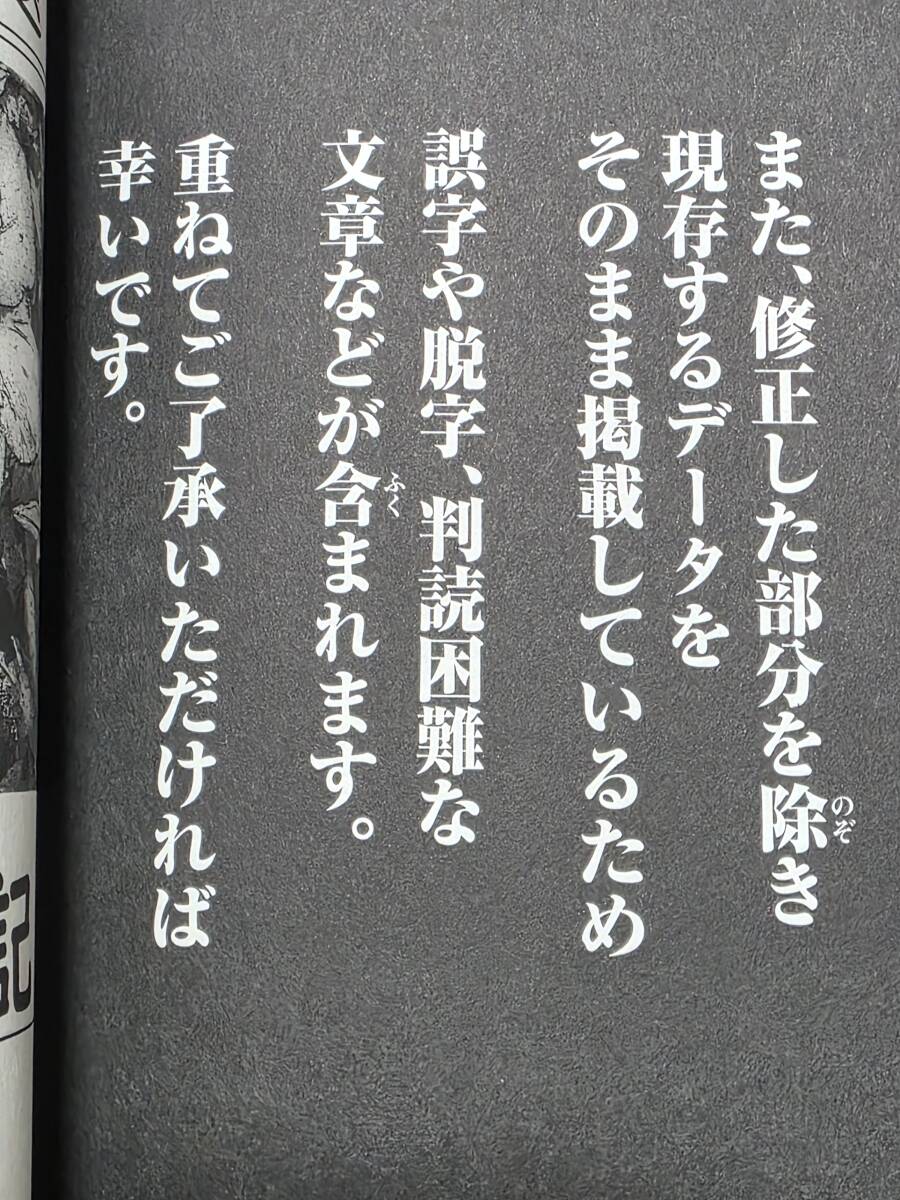 また、修正した部分を除き
のぞ
現存するデータを
そのまま掲載しているため
誤字や脱字、判読困難な
文章などが含まれます。
ふく
重ねてご了承いただければ
幸いです。
記